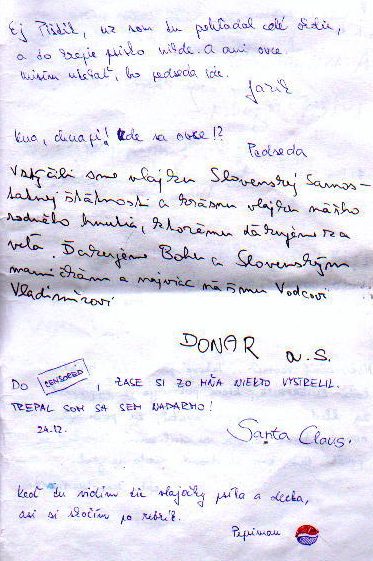 Ej Pišik, už som tu pohľadal celé srdce,
a do zvepie prišlo nikde. A ani ovce
musím utekať, bo pedseda ide.
Jarik
Kua, chuapi! kde sa ovce!?
Pedseda
Vstýčili sme vlajku Slovenskej Samos-
tatnej štátnosti a krásnu vlajku nášho
rodného hnutia, ktorému ďakujeme za
veľa. Ďakujeme Bohu a Slovenským
mamičkám a najviac nášmu Vodcovi
Vladimírovi
DONAR a.s.
DO CENSORED, ZASE SI ZO MŇA NIEKTO VYSTRELIL.
TREPAL SOM SA SEM NADARMO!
24.12.
Santa Claus.
Keď tu vidím tie vlajočky
a
asi si skočím po rebrík.
Pepiman